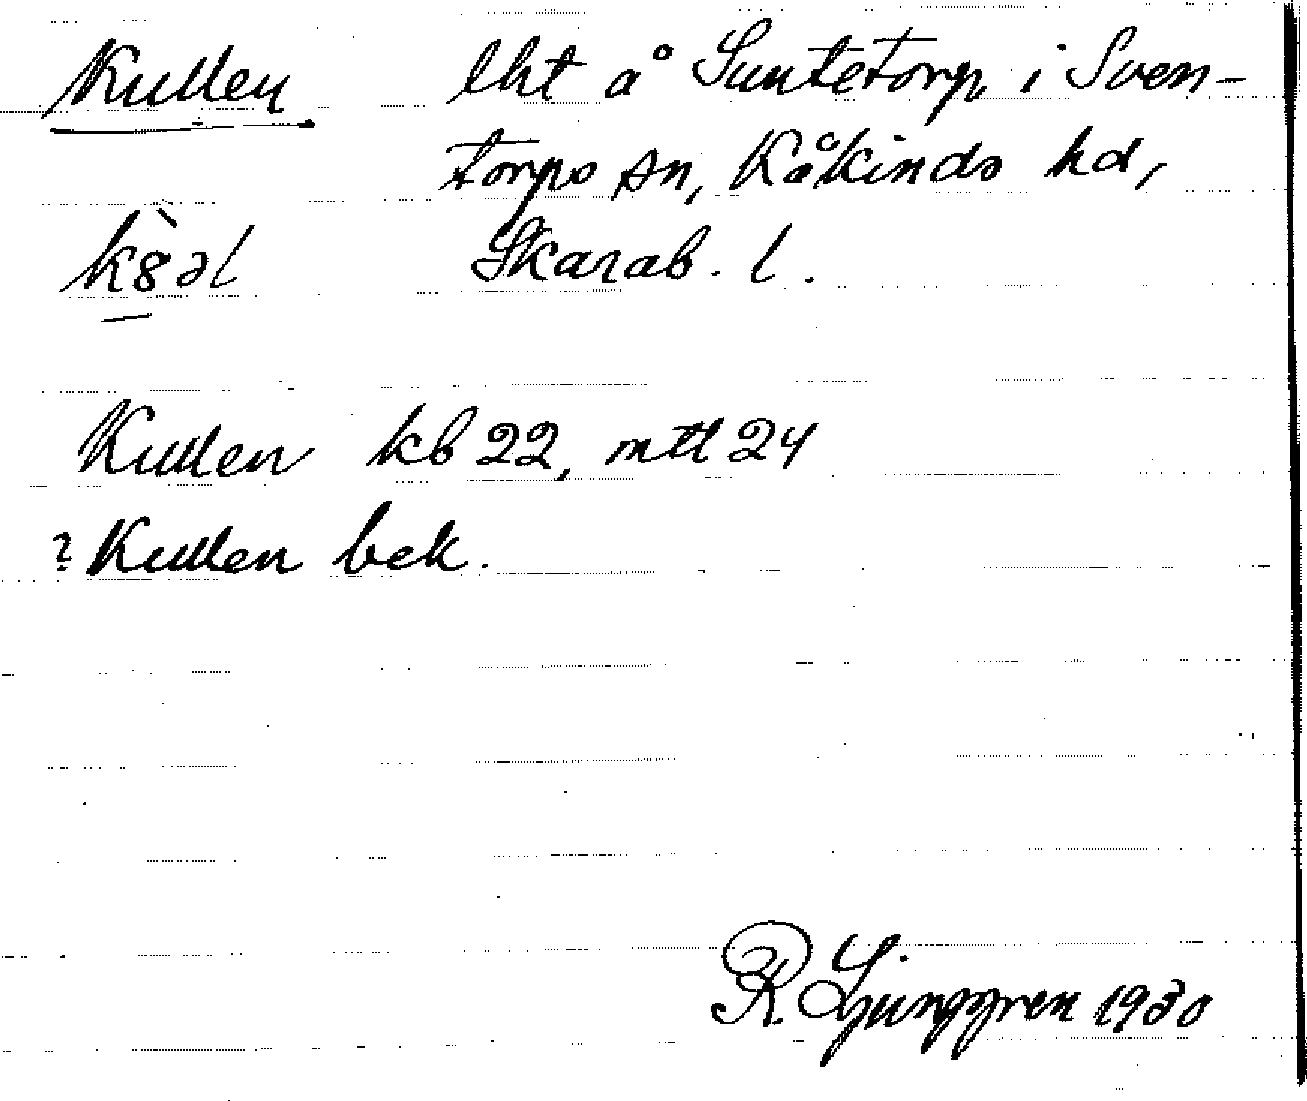 Kullen lht å Suntetorp i Sven-
torps sn, Kåkinds hd,
k8̀əl Skarab. l.
Kullen kb 22, mtl 24
? Kullen bek.
R. Ljunggren 1930